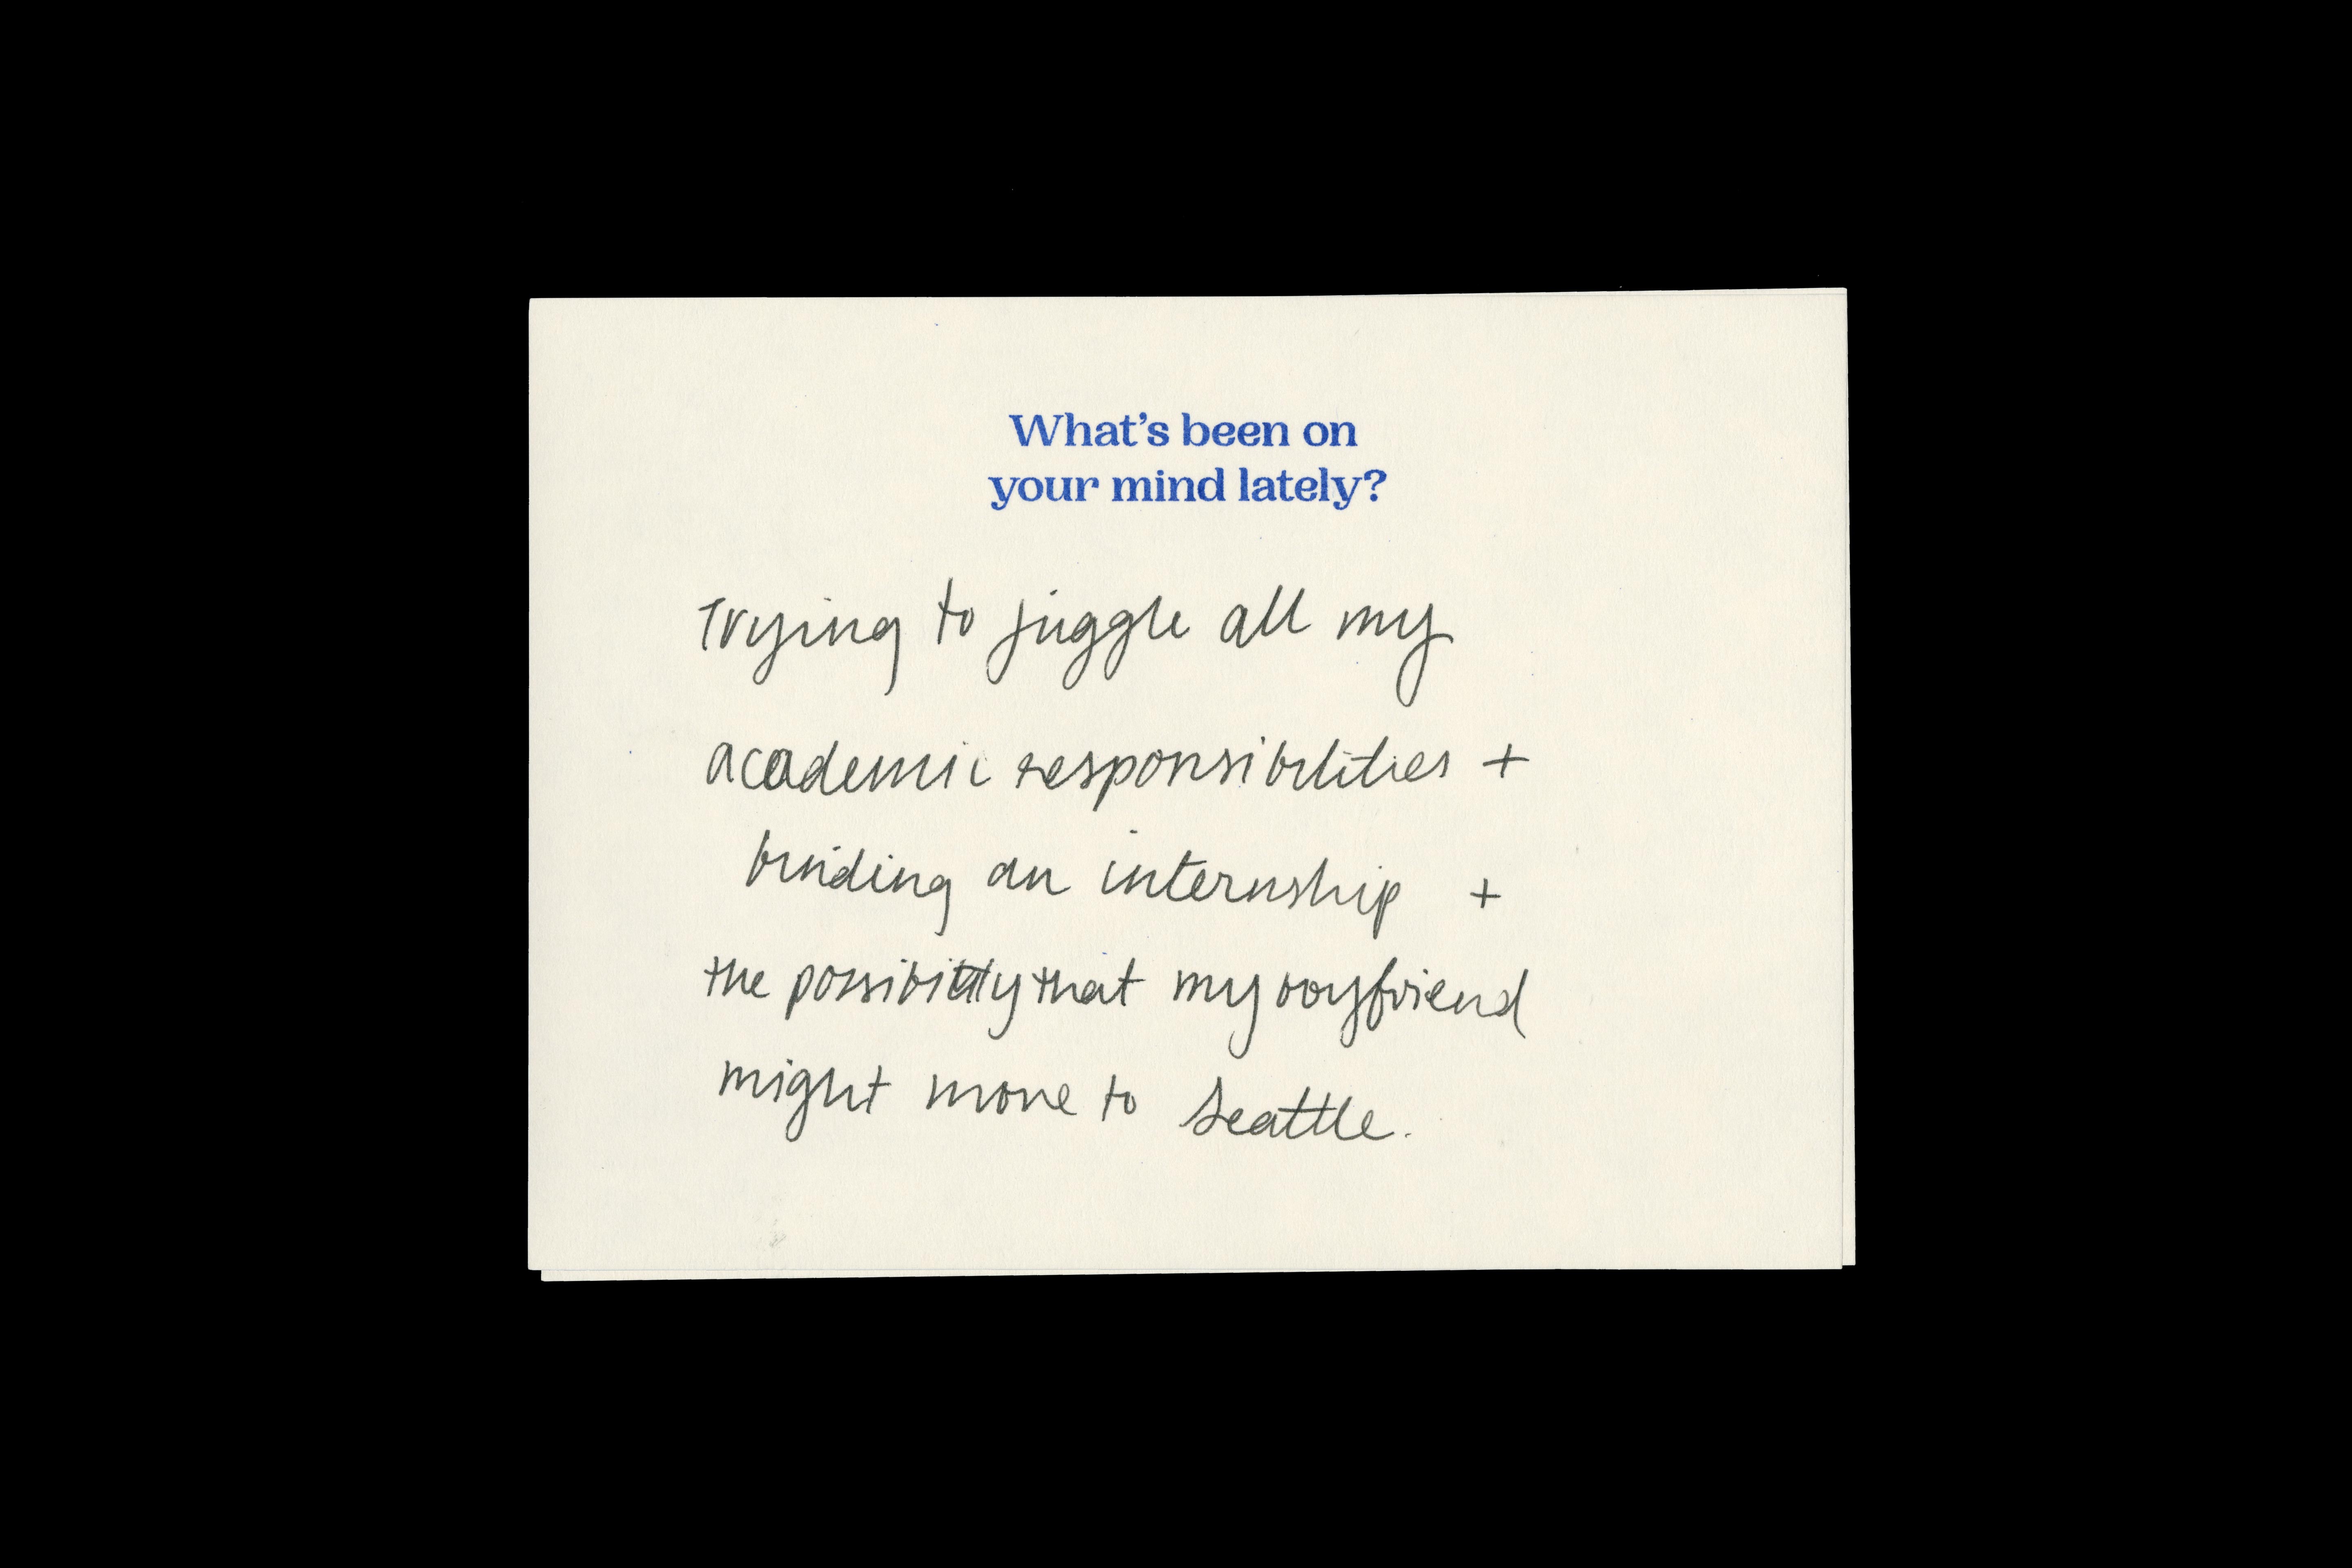 What's been on
your mind lately?
Trying to juggle all my
academic responsibilities +
finding an internship +
the possibility that my boyfriend
might move to Seattle.